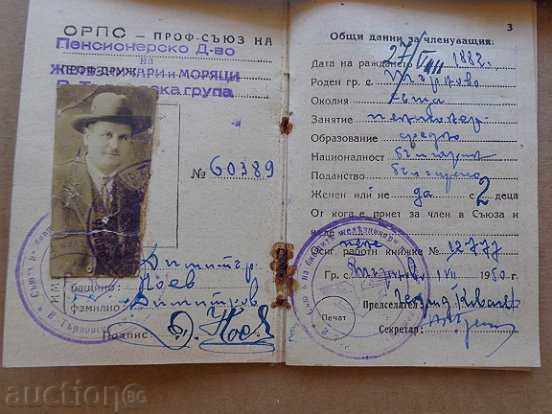 ОРПС – ПРОФ-СЪЮЗ НА
Пенсионерско Д-во
на
ЖЕЛЕЗНИЧАРИ и МОРЯЦИ
група
№ 60389
Димитър
бащино:
фамилно Димитров
Подпис:
3
Общи данни за членуващия:
Дата на раждането 27/VIII 1882 г.
Роден гр. с. Търново
Околия също
Занятие пенсионер
Образование средно
Националност българин
Поданство българско
Женен или не да с 2 деца
От кога е приет за член в Съюза и
къде
Осиг. работн книжке № 12777
Гр. с. Търново 1 VII 1950 г.
Председател:
Печат
Секретар: